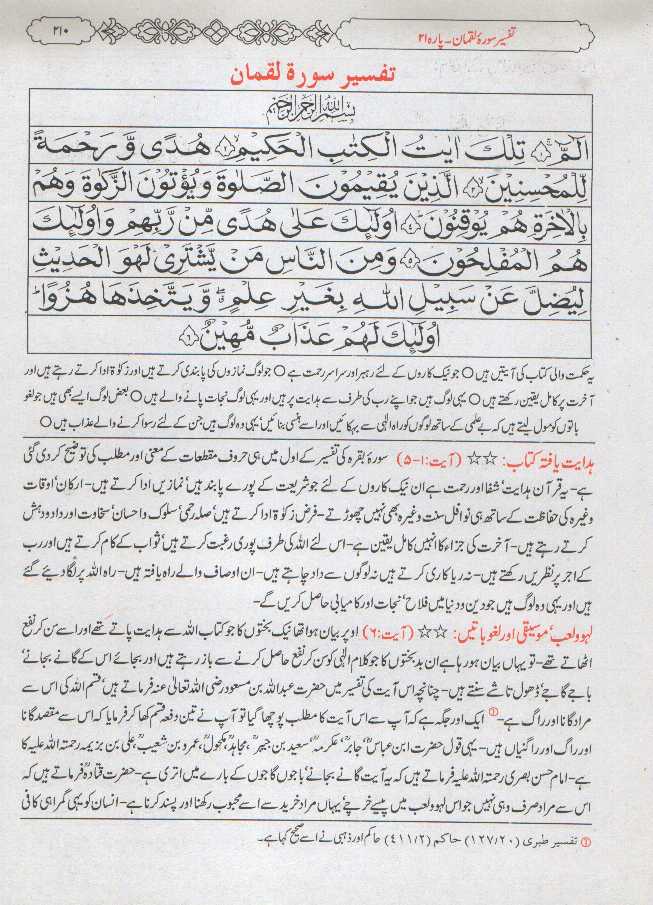 تفسیر سورۂ لقمان۔ پارہ ۲۱
۲۱۰
تفسیر سورۃ لقمان
بِسْمِ اللّٰهِ الرَّحْمٰنِ الرَّحِيْمِ
الٓمّٓ ۝۱ تِلْكَ اٰيٰتُ الْكِتٰبِ الْحَكِيْمِ ۝۲ هُدًى وَّ رَحْمَةً
لِّلْمُحْسِنِيْنَ ۝۳ الَّذِيْنَ يُقِيْمُوْنَ الصَّلٰوةَ وَ يُؤْتُوْنَ الزَّكٰوةَ وَ هُمْ
بِالْاٰخِرَةِ هُمْ يُوْقِنُوْنَ ۝۴ اُولٰٓئِكَ عَلٰى هُدًى مِّنْ رَّبِّهِمْ وَ اُولٰٓئِكَ
هُمُ الْمُفْلِحُوْنَ ۝۵ وَ مِنَ النَّاسِ مَنْ يَّشْتَرِيْ لَهْوَ الْحَدِيْثِ
لِيُضِلَّ عَنْ سَبِيْلِ اللّٰهِ بِغَيْرِ عِلْمٍ ۖ وَّ يَتَّخِذَهَا هُزُوًا ؕ
اُولٰٓئِكَ لَهُمْ عَذَابٌ مُّهِيْنٌ ۝۶
یہ حکمت والی کتاب کی آیتیں ہیں ○ جو نیک کاروں کے لئے رہبر اور سراسر رحمت ہے ○ جو لوگ نمازوں کی پابندی کرتے ہیں اور زکوٰۃ ادا کرتے رہتے ہیں اور
آخرت پر کامل یقین رکھتے ہیں ○ یہی لوگ ہیں جو اپنے رب کی طرف سے ہدایت پر ہیں اور یہی لوگ نجات پانے والے ہیں ○ بعض لوگ ایسے بھی ہیں جو لغو
باتوں کو مول لیتے ہیں کہ بے علمی کے ساتھ لوگوں کو راہ الٰہی سے بہکائیں اور اسے ہنسی بنائیں‘ یہی وہ لوگ ہیں جن کے لئے رسوا کرنے والے عذاب ہیں ○
ہدایت یافتہ کتاب: ☆☆ (آیت:۱-۵) سورۂ بقرہ کی تفسیر کے اول میں ہی حروف مقطعات کے معنی اور مطلب کی توضیح کر دی گئی
ہے۔ یہ قرآن ہدایت‘ شفا اور رحمت ہے ان نیک کاروں کے لئے جو شریعت کے پورے پابند ہیں‘ نمازیں ادا کرتے ہیں۔ ارکان‘ اوقات
وغیرہ کی حفاظت کے ساتھ ہی نوافل سنت وغیرہ بھی نہیں چھوڑتے۔ فرض زکوٰۃ ادا کرتے ہیں‘ صلہ رحمی‘ سلوک و احسان‘ سخاوت اور داد و دہش
کرتے رہتے ہیں۔ آخرت کی جزا کا انہیں کامل یقین ہے۔ اس لئے اللہ کی طرف پوری رغبت کرتے ہیں‘ ثواب کے کام کرتے ہیں اور رب
کے اجر پر نظریں رکھتے ہیں۔ نہ ریا کاری کرتے ہیں نہ لوگوں سے داد چاہتے ہیں۔ ان اوصاف والے راہ یافتہ ہیں۔ راہ اللہ پر لگا دیئے گئے
ہیں اور یہی وہ لوگ ہیں جو دین و دنیا میں فلاح‘ نجات اور کامیابی حاصل کریں گے۔
لہو و لعب‘ موسیقی اور لغو باتیں: ☆☆ (آیت:۶) اوپر بیان ہوا تھا نیک بختوں کا جو کتاب اللہ سے ہدایت پاتے تھے اور اسے سن کر نفع
اٹھاتے تھے۔ تو یہاں بیان ہو رہا ہے ان بدبختوں کا جو کلام الٰہی کو سن کر نفع حاصل کرنے سے باز رہتے ہیں اور بجائے اس کے گانے بجانے‘
باجے گاجے‘ ڈھول تاشے سنتے ہیں۔ چنانچہ اس آیت کی تفسیر میں حضرت عبداللہ بن مسعود رضی اللہ تعالیٰ عنہ فرماتے ہیں‘ قسم اللہ کی اس سے
مراد گانا اور راگ ہے۔① ایک اور جگہ ہے کہ آپ سے اس آیت کا مطلب پوچھا گیا تو آپ نے تین دفعہ قسم کھا کر فرمایا کہ اس سے مقصد گانا
اور راگ اور راگنیاں ہیں۔ یہی قول حضرت ابن عباسؓ‘ جابرؓ‘ عکرمہؒ‘ سعید بن جبیرؒ‘ مجاہدؒ‘ مکحولؒ‘ عمرو بن شعیبؒ‘ علی بن بذیمہ رحمۃ اللہ علیہ کا
ہے۔ امام حسن بصری رحمۃ اللہ علیہ فرماتے ہیں کہ یہ آیت گانے بجانے‘ باجوں گاجوں کے بارے میں اتری ہے۔ حضرت قتادہؒ فرماتے ہیں کہ
اس سے مراد صرف وہی نہیں جو اس لہو و لعب میں پیسے خرچے‘ یہاں مراد خرید سے اسے محبوب رکھنا اور پسند کرنا ہے۔ انسان کو یہی گمراہی کافی
① تفسیر طبری (۲۰/۱۲۷) حاکم (۲/۴۱۱) حاکم اور ذہبی نے اسے صحیح کہا ہے۔